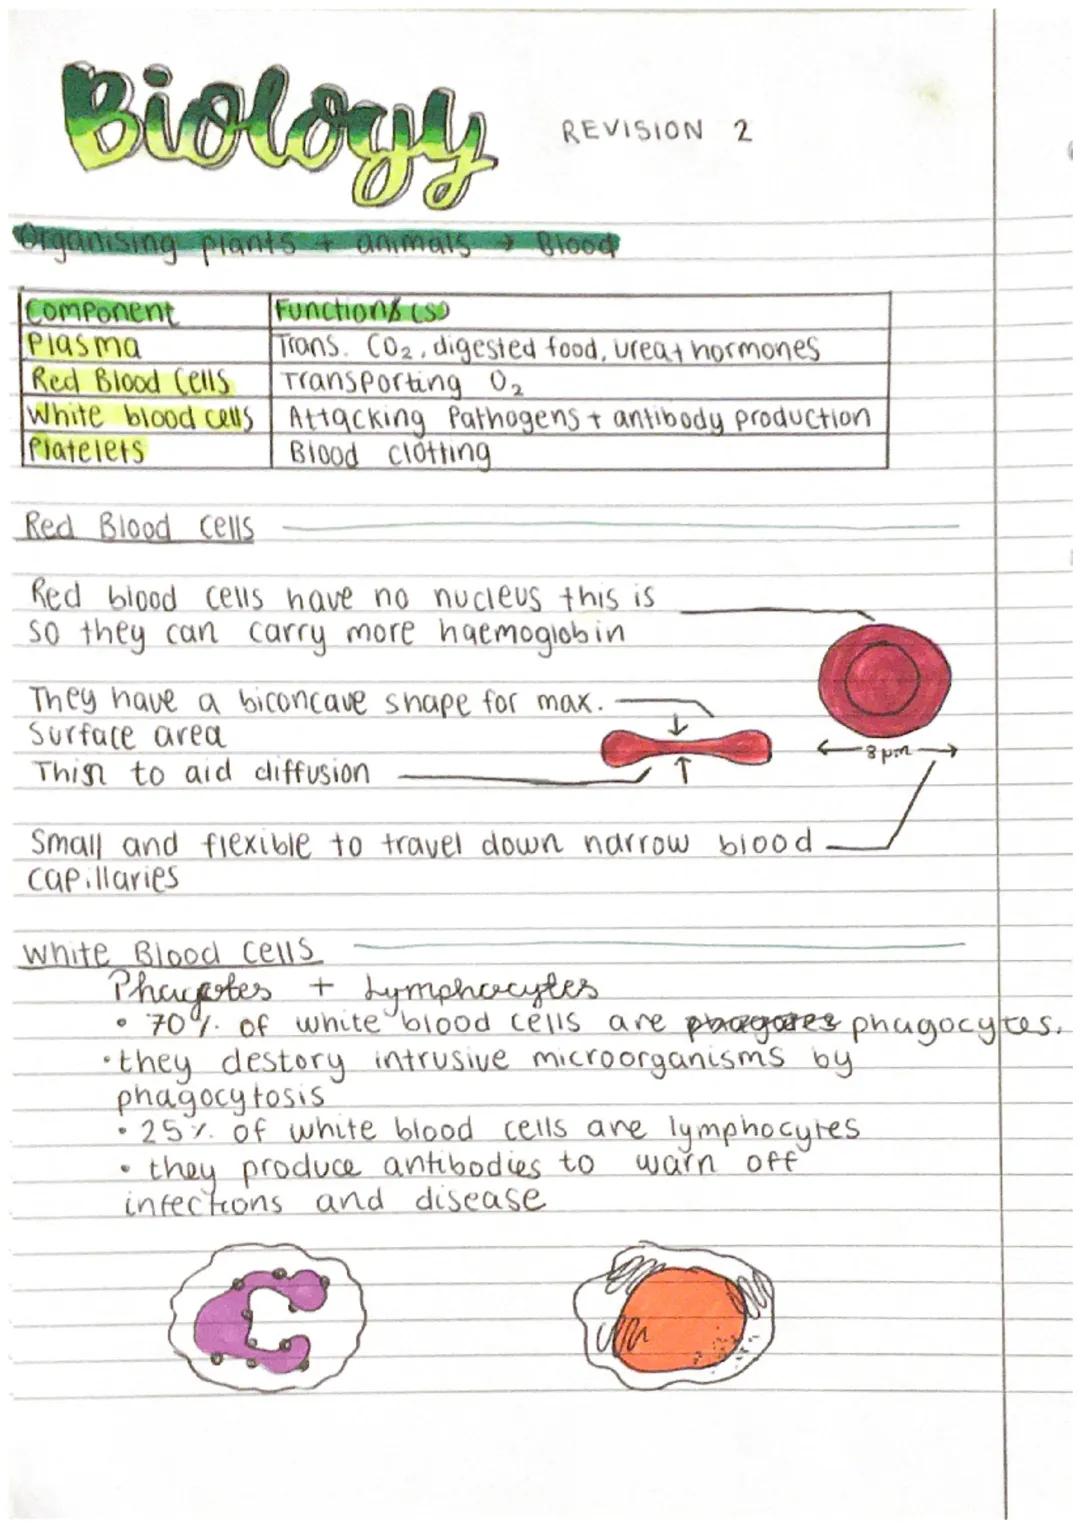 Biology
REVISION 2
Organising plants + animals → Blood
Component Functions (s)
Plasma Trans. CO2, digested food, urea + hormones
Red Blood Cells Transporting O2
White blood cells Attacking Pathogens + antibody production
Platelets Blood clotting
Red Blood Cells
Red blood cells have no nucleus this is
so they can carry more haemoglobin
They have a biconcave shape for max.
Surface area
Thin to aid diffusion
8 µm
Small and flexible to travel down narrow blood
capillaries
White Blood Cells
Phagocytes + Lymphocytes
• 70% of white blood cells are phagocytes.
• they destory intrusive microorganisms by
phagocytosis
• 25% of white blood cells are lymphocytes
• they produce antibodies to warn off
infections and disease